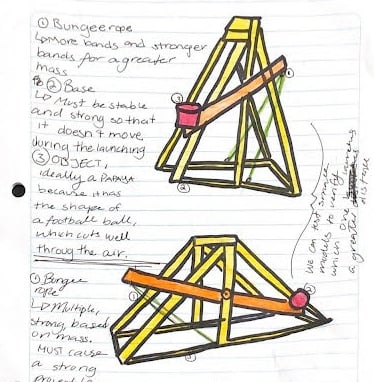 ① Bungee rope
↳ More bands and stronger
bands for a greater
mass
② Base
↳ Must be stable
and strong so that
it doesn't move,
during the launching
③ OBJECT,
ideally a PAPAYA
because it has
the shape of
a football ball,
which cuts well
throug the air.
① Bungee
rope
↳ Multiple,
strong, based
on mass.
MUST cause
a strong
③
1
②
1
②
we can test
models to verify
which one
a greater
distance